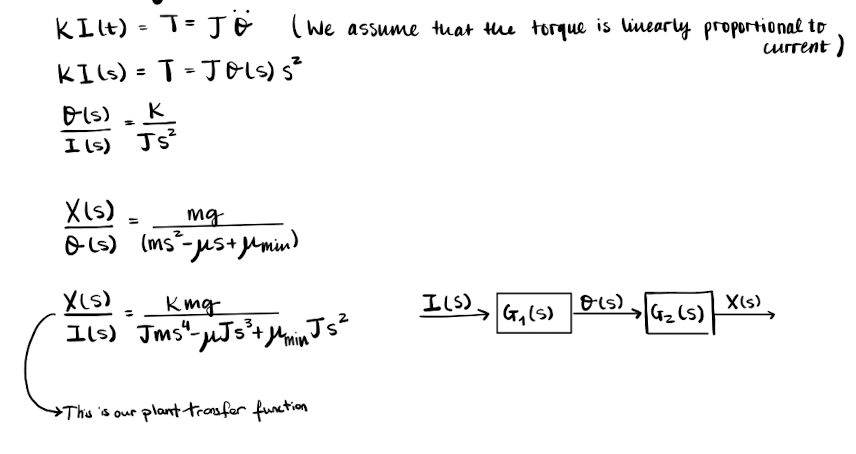 KI(t) = T = Jθ̈ (We assume that the torque is linearly proportional to
current)
KI(s) = T = Jθ(s)s²
θ(s)/I(s) = K/Js²
X(s)/θ(s) = mg/(ms²-μs+μmin)
X(s)/I(s) = Kmg/Jms⁴-μJs³+μminJs²
I(s) G₁(s) θ(s) G₂(s) X(s)
This is our plant transfer function